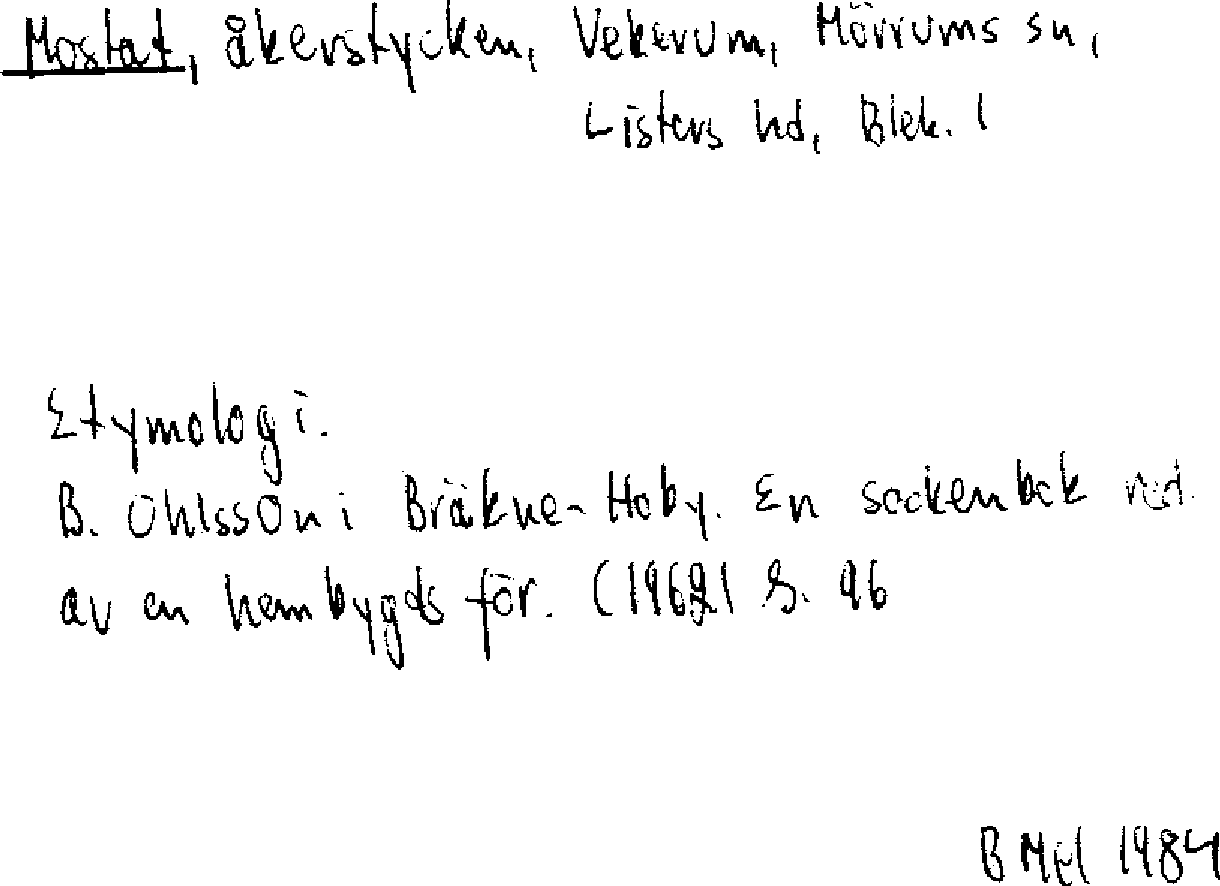 Mostat, åkerstycken, Vekerum, Mörrums sn,
Listers hd, Blek. l
Etymologi.
B. Ohlsson i Bräkne-Hoby. En sockenbok red.
av en hembygdsför. (1962) S. 96
B Mjl 1984